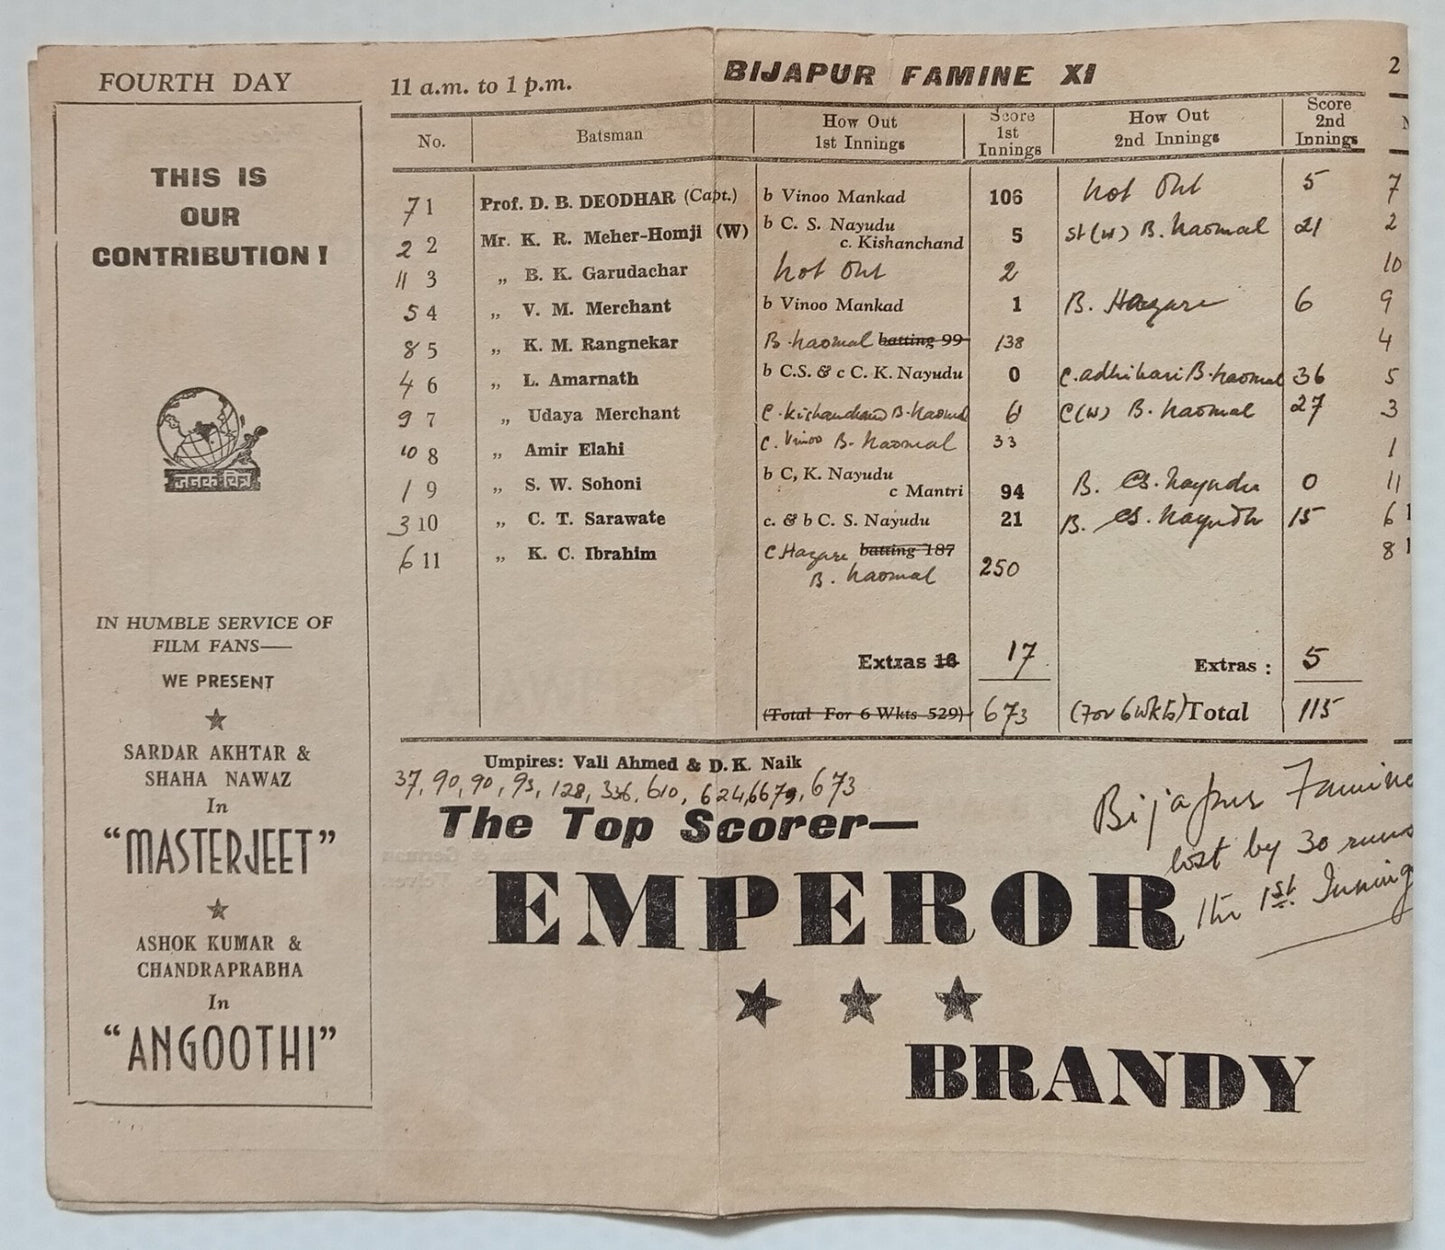 FOURTH DAY
THIS IS
OUR
CONTRIBUTION !
जनक चित्र
IN HUMBLE SERVICE OF
FILM FANS—
WE PRESENT
SARDAR AKHTAR &
SHAHA NAWAZ
In
"MASTERJEET"
ASHOK KUMAR &
CHANDRAPRABHA
In
"ANGOOTHI"
11 a.m. to 1 p.m. BIJAPUR FAMINE XI 2
No. Batsman How Out 1st Innings Score 1st Innings How Out 2nd Innings Score 2nd Innings
7 1 Prof. D. B. DEODHAR (Capt.) b Vinoo Mankad 106 not out 5 7
2 2 Mr. K. R. Meher-Homji (W) b C. S. Nayudu 5 st (W) B. Naomal 21 2
c. Kishanchand
11 3 ,, B. K. Garudachar not out 2 10
5 4 ,, V. M. Merchant b Vinoo Mankad 1 B. Hazare 6 9
8 5 ,, K. M. Rangnekar B. Naomal batting 99 138 4
4 6 ,, L. Amarnath b C.S. & c C. K. Nayudu 0 C. adhikari B. Naomal 36 5
9 7 ,, Udaya Merchant C. Kishanchand B. Naomal 6 C (W) B. Naomal 27 3
10 8 ,, Amir Elahi C. Vinoo B. Naomal 33 1
1 9 ,, S. W. Sohoni b C, K. Nayudu 94 B. CS. Nayudu 0 11
c Mantri
3 10 ,, C. T. Sarawate c. & b C. S. Nayudu 21 B. CS. Nayudu 15 6 1
6 11 ,, K. C. Ibrahim C Hazare batting 187 250 8 1
B. Naomal
Extras 16 17 Extras : 5
(Total For 6 Wkts 529) 673 (For 6 Wkts) Total 115
Umpires: Vali Ahmed & D. K. Naik
37, 90, 90, 93, 128, 336, 610, 624, 667, 673
The Top Scorer—
EMPEROR
BRANDY
Bijapur Famine
lost by 30 runs
1st Inning